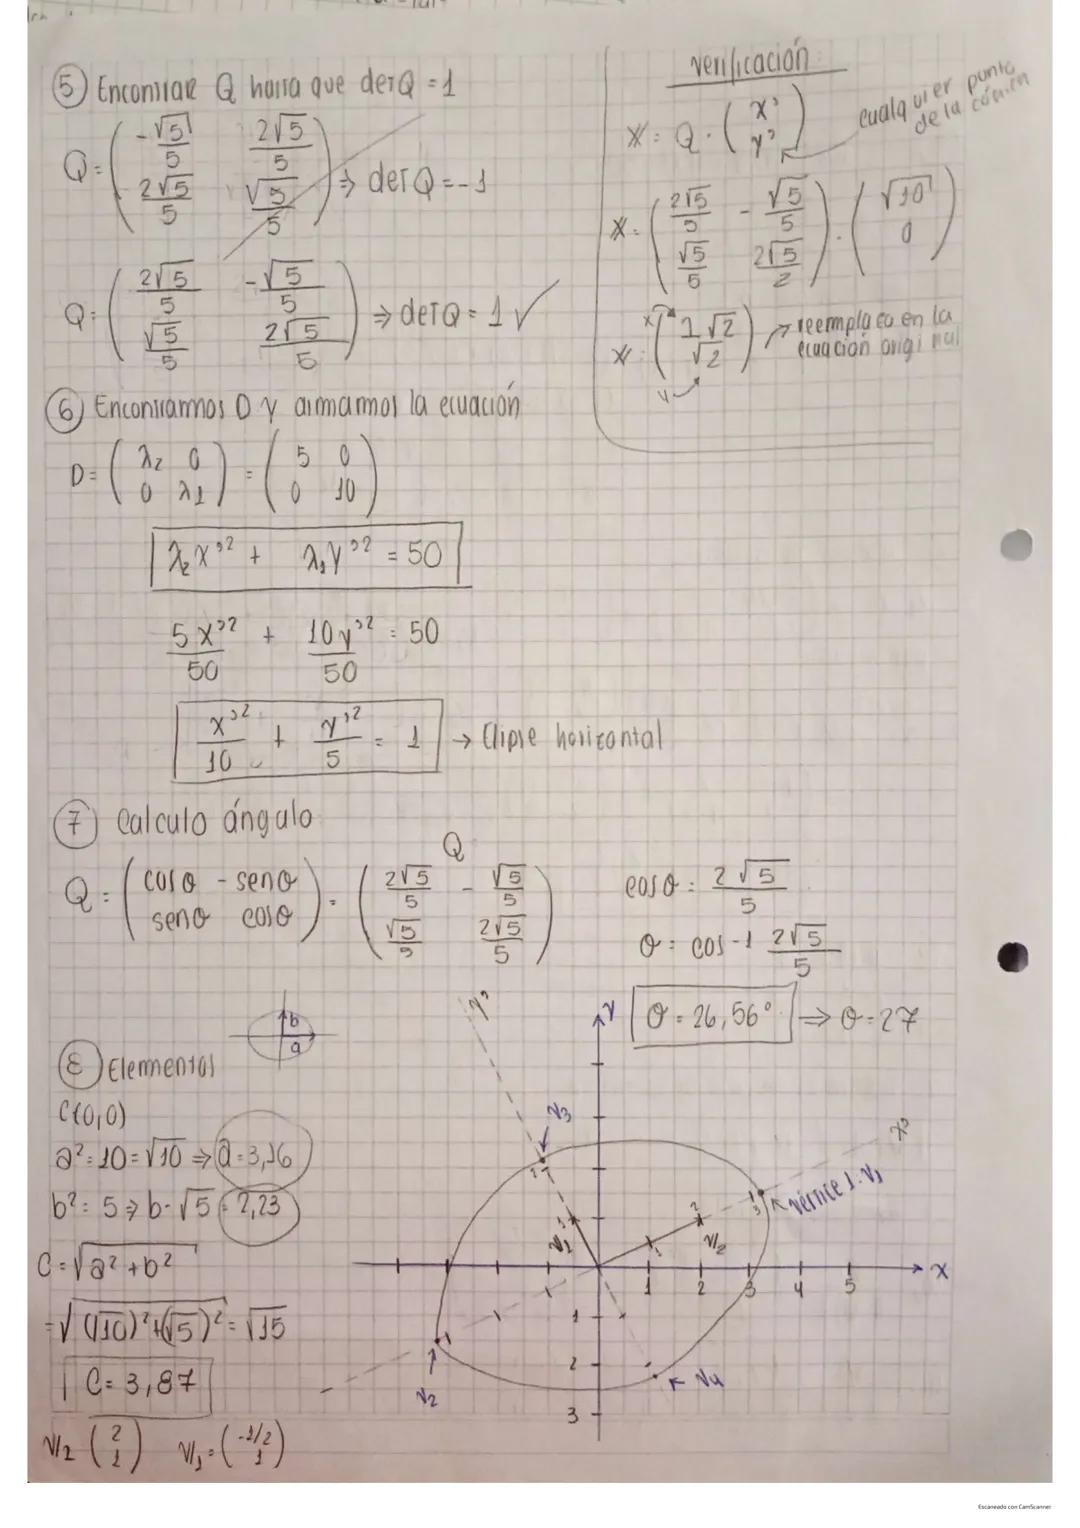 ⑤ Encontrar Q hasta que detQ = 1
Q = ( -√5/5 2√5/5 ; 2√5/5 √5/5 ) ⇒ detQ = -1
Q = ( 2√5/5 -√5/5 ; √5/5 2√5/5 ) ⇒ detQ = 1 ✓
verificación
X = Q · ( x' ; y' )
cualquier punto
de la cónica
X = ( 2√5/5 - √5/5 ; √5/5 2√5/2 ) · ( √10 ; 0 )
X = ( 2√2 ; √2 ) → reemplazo en la
ecuación original
⑥ Encontramos D y armamos la ecuación
D = ( λ2 0 ; 0 λ1 ) = ( 5 0 ; 0 10 )
λ2 x'² + λ1 y'² = 50
5x'²/50 + 10y'²/50 = 50
x'²/10 + y'²/5 = 1 → Elipse horizontal
⑦ Calculo ángulo
Q
Q = ( cosθ - senθ ; senθ cosθ ) = ( 2√5/5 - √5/5 ; √5/5 2√5/5 )
cosθ = 2√5/5
θ = cos-1 2√5/5
θ = 26,56° ⇒ θ = 27
⑧ Elementos
b
a
C(0,0)
a² = 10 = √10 ⇒ a = 3,16
b² = 5 ⇒ b = √5 = 2,23
C = √a² + b²
= √(√10)² + (√5)² = √15
C = 3,87
V2 ( 2 ; 1 ) V1 = ( -1/2 ; 1 )
y'
y
x'
x
V3
vértice 1 = V1
V2
V1
V2
V4
1 2 3 4 5
1
2
3
Escaneado con CamScanner